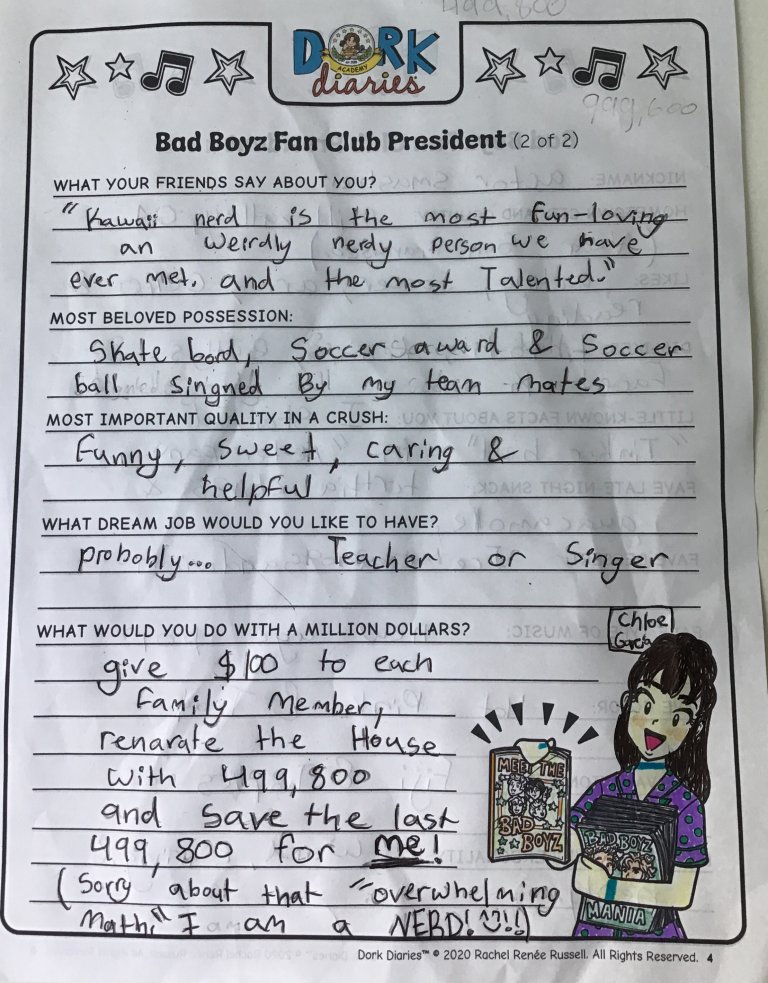 499,800
DORK
ACADEMY
diaries
999,600
Bad Boyz Fan Club President (2 of 2)
WHAT YOUR FRIENDS SAY ABOUT YOU?
"Kawaii nerd is the most fun-loving
an weirdly nerdy person we have
ever met. and the most Talented."
MOST BELOVED POSSESSION:
Skate bord, Soccer award & Soccer
ball singned By my team mates
MOST IMPORTANT QUALITY IN A CRUSH:
Funny, sweet, caring &
helpful
WHAT DREAM JOB WOULD YOU LIKE TO HAVE?
probobly... Teacher or Singer
WHAT WOULD YOU DO WITH A MILLION DOLLARS?
Chloe
Garcia
give $100 to each
family Member,
renarate the House
with 499,800
and save the last
499,800 for me!
(Sorry about that "overwhelming
Math." I am a NERD!^:)!!)
MEET THE
BAD
BOYZ
BAD BOYZ
MANIA
Dork Diaries™ © 2020 Rachel Renée Russell. All Rights Reserved. 4